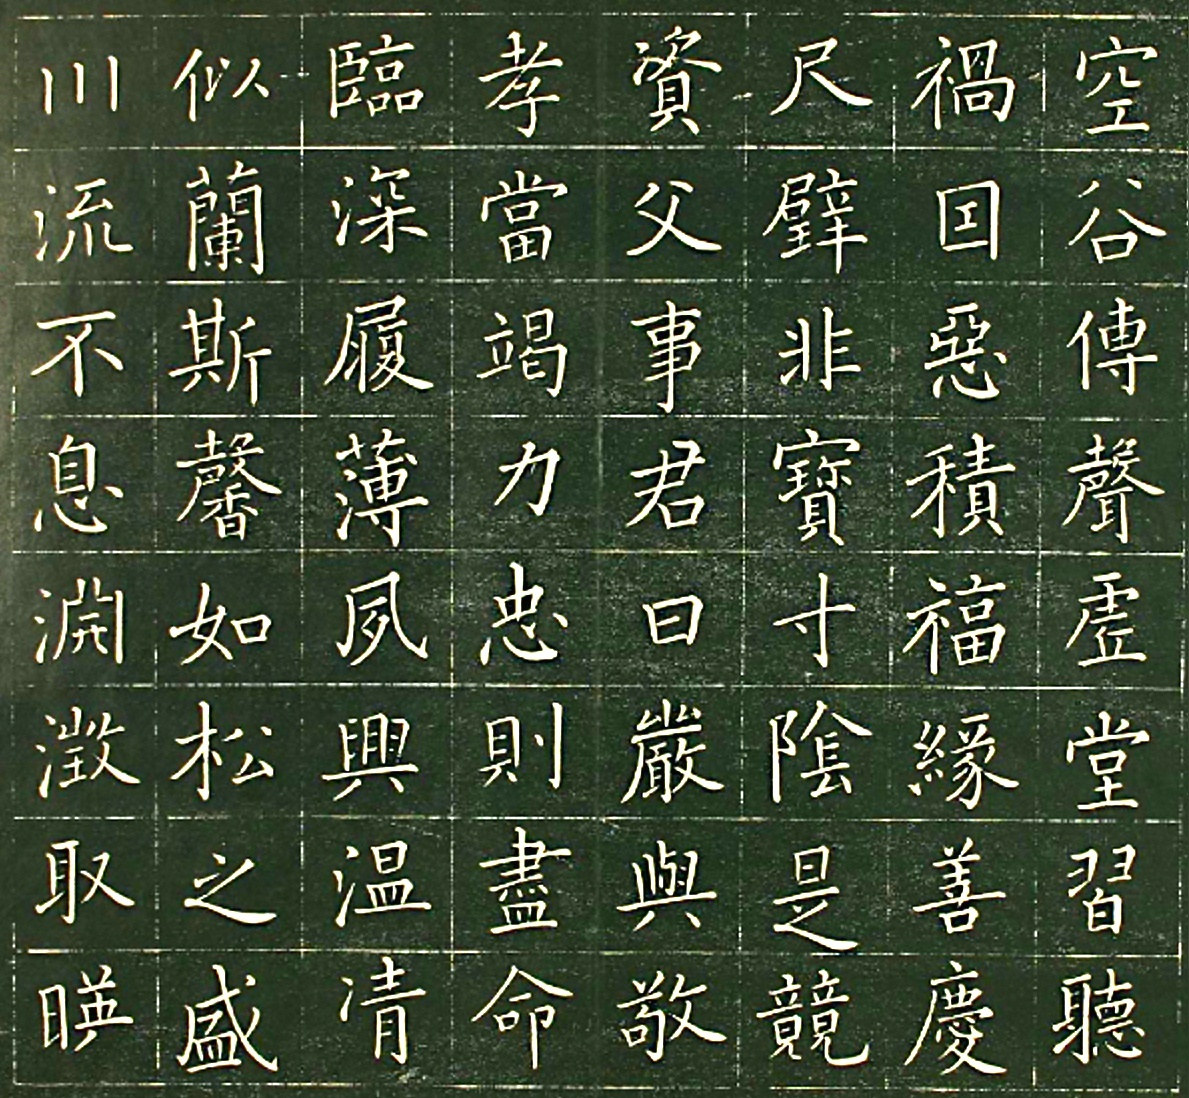 空谷傳聲虛堂習聽
禍因惡積福緣善慶
尺璧非寶寸陰是競
資父事君曰嚴與敬
孝當竭力忠則盡命
臨深履薄夙興温凊
似蘭斯馨如松之盛
川流不息淵澄取暎